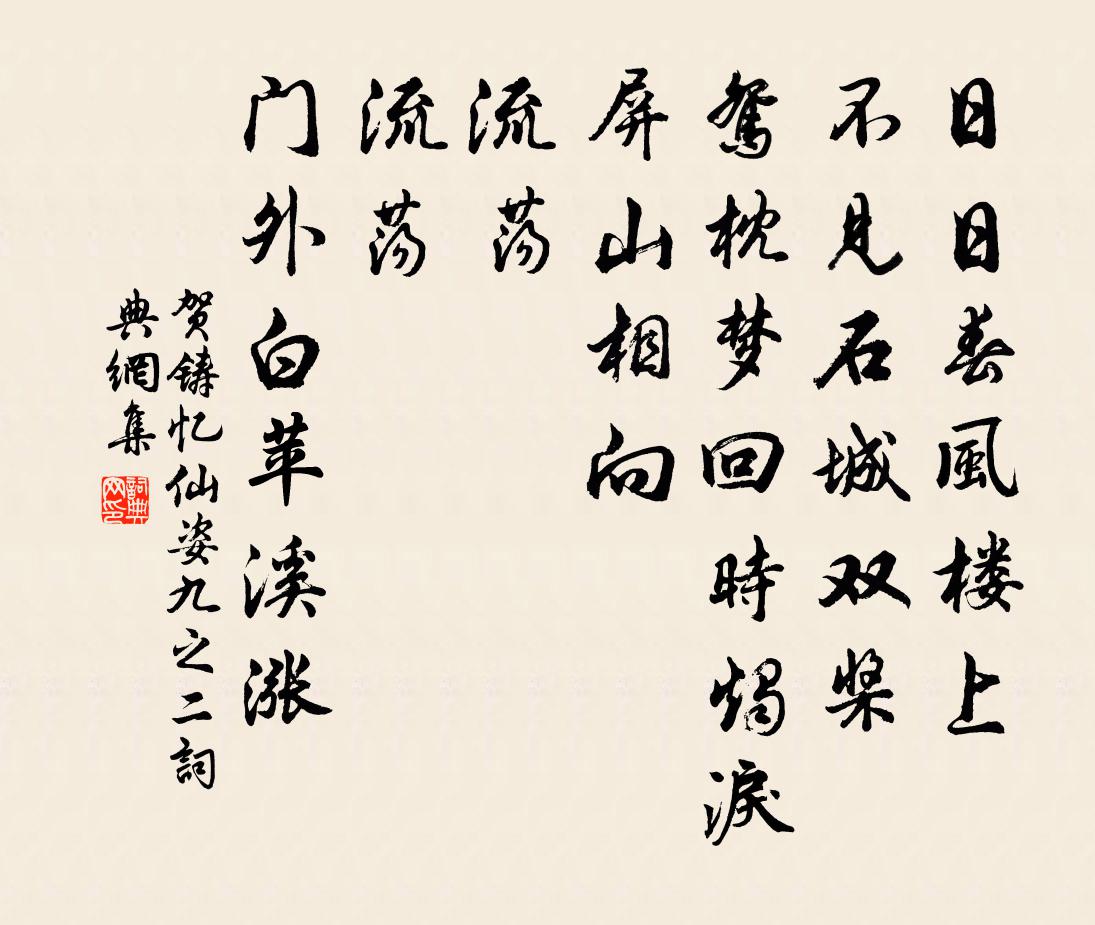 日日春風楼上
不见石城双桨
鸳枕梦回時烛淚
屏山相向
流荡
流荡
门外白苹溪涨
贺铸忆仙姿九之二詞
典網集
詞典网印